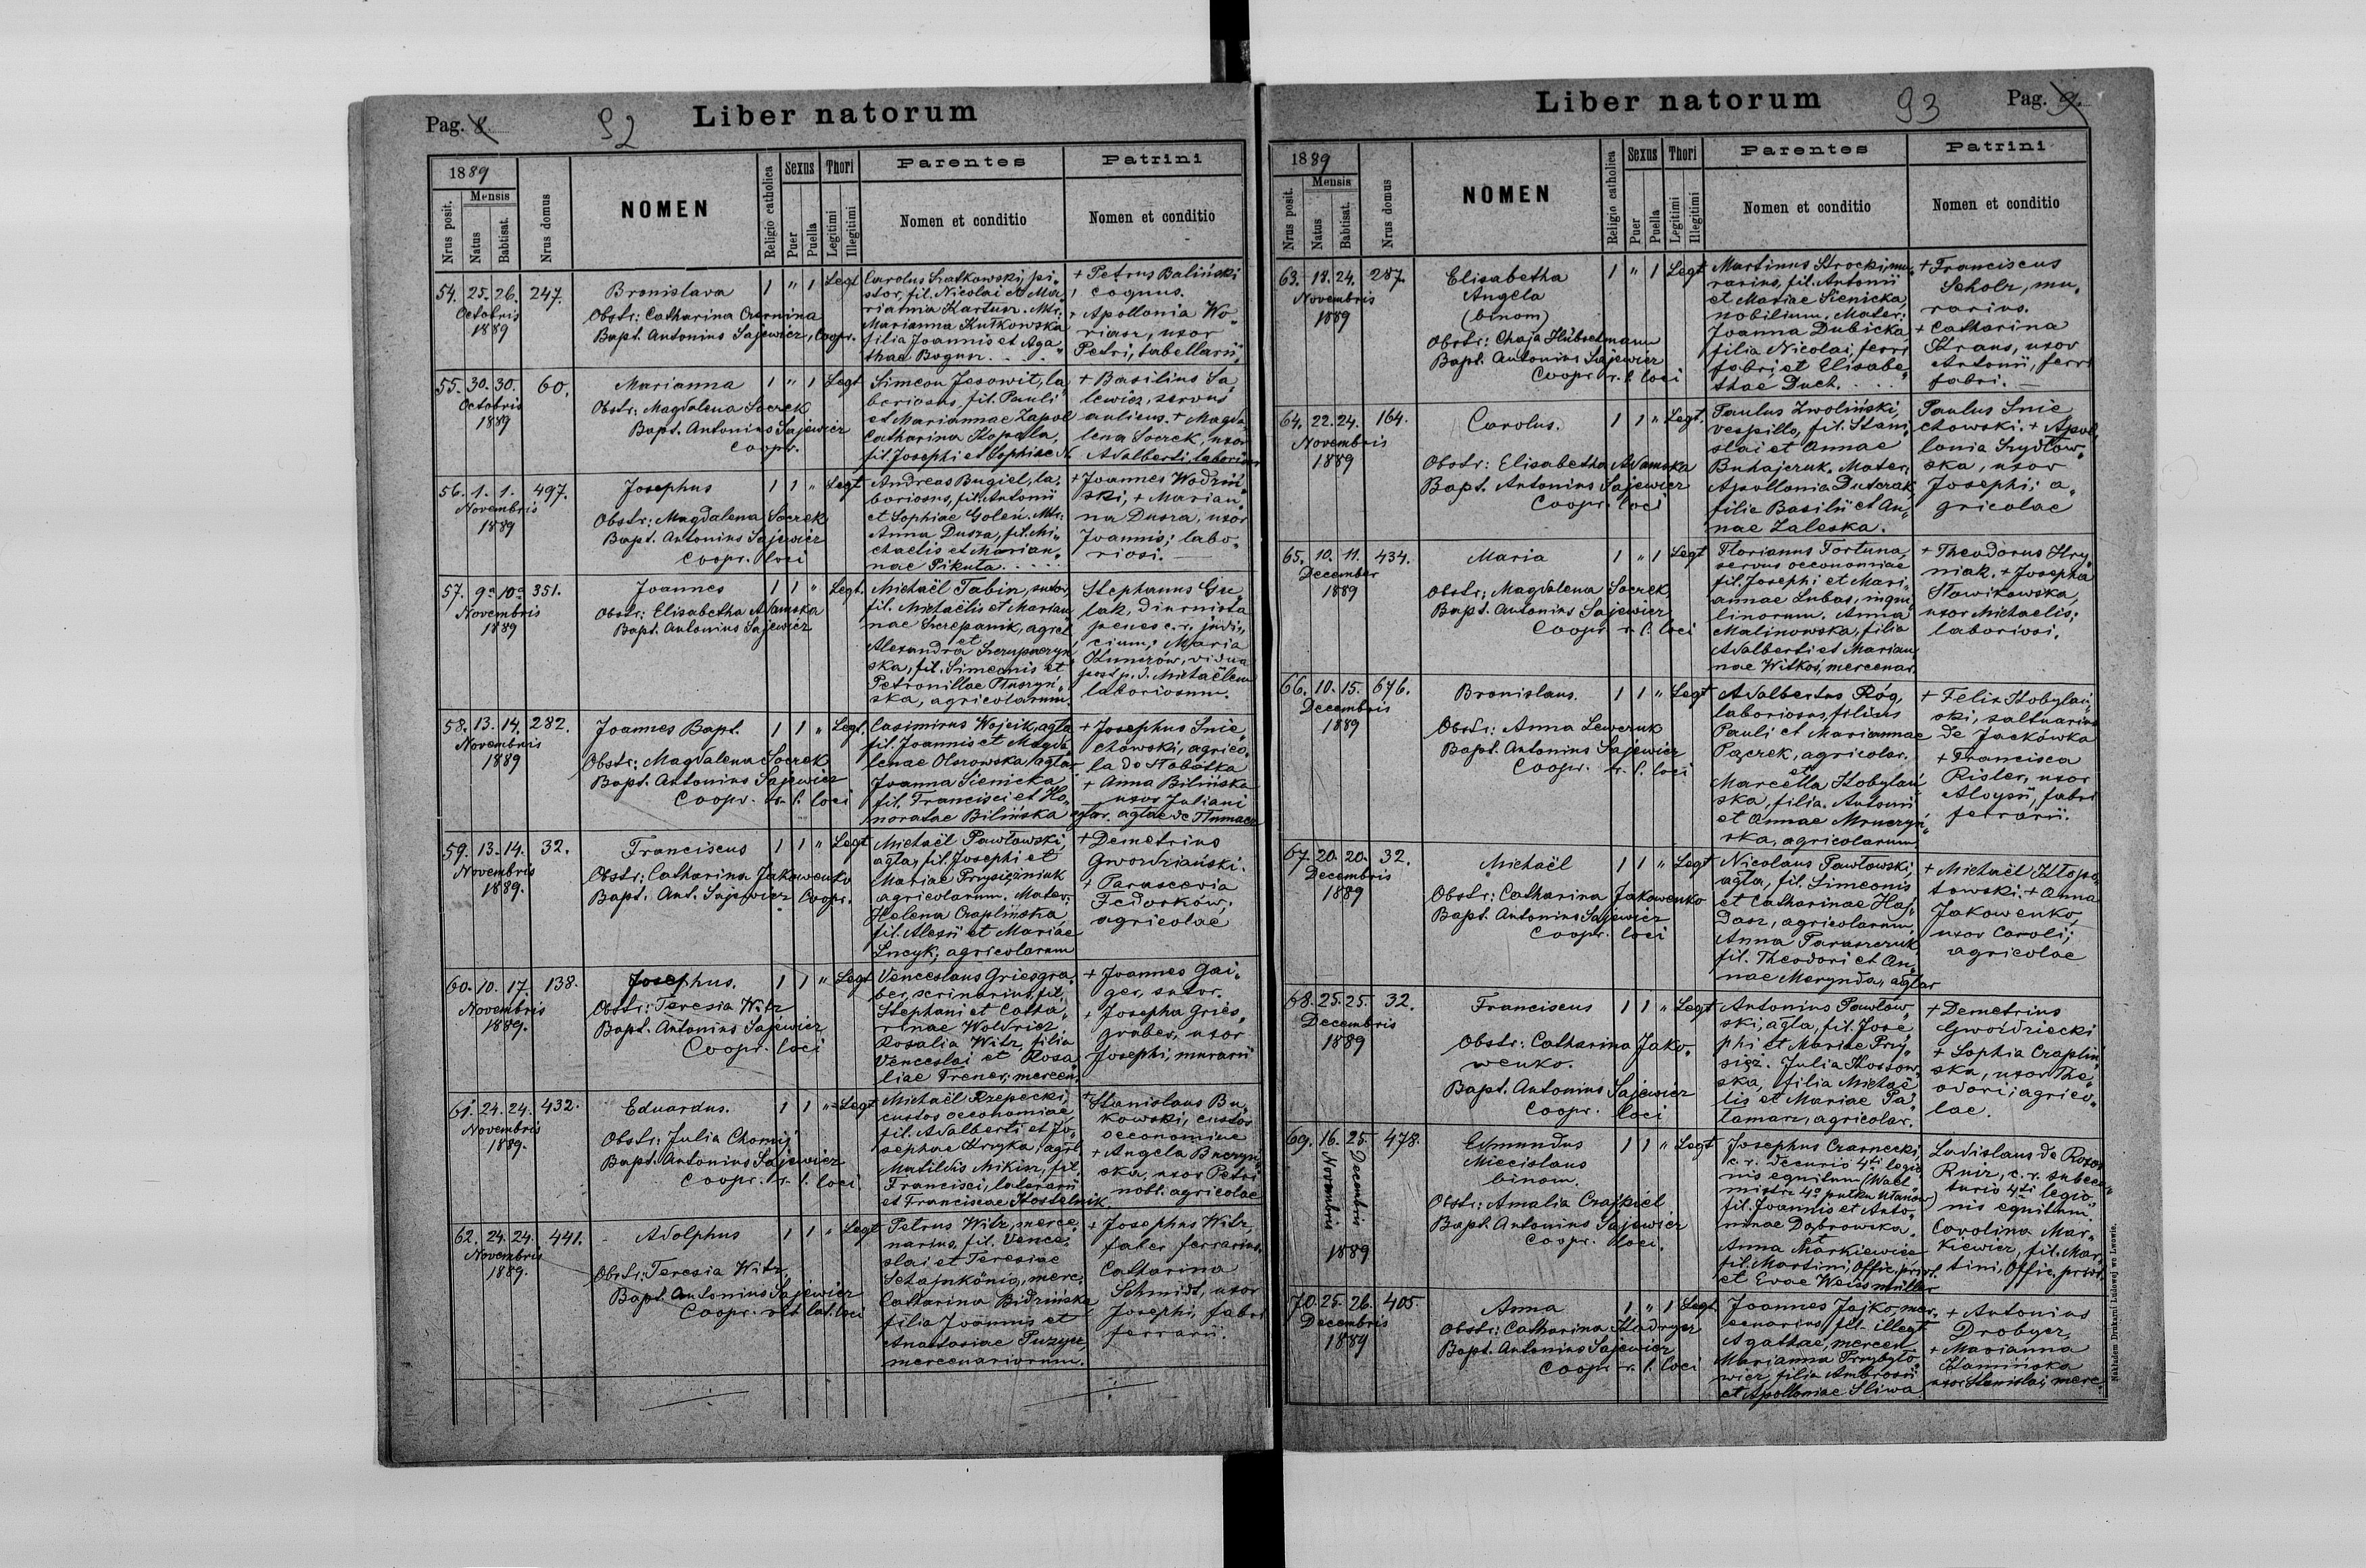 Pag. 8.
92
Liber natorum
1889
Nrus posit.
Mensis
Natus
Babtisat.
Nrus domus
NOMEN
Religio catholica
Sexus
Puer
Puella
Thori
Legitimi
Illegitimi
Parentes
Nomen et conditio
Patrini
Nomen et conditio
54. 25. 26. 247.
Octobris
1889
Bronislava 1 " 1 Legt
Obstr: Catharina Czornina
Bapt. Antonius Sajewicz, Coopr.
Carolus Szatkowski, pi„
stor, fil. Nicolai et Ma„
rianna Kartusz. Mtr:
Marianna Kutkowska
filia Joannis et Aga„
thae Bogusz. . . .
+ Petrus Baliński
coquus.
+ Apollonia Wo„
riasz, uxor
Petri, tabellarii.
55. 30. 30. 60.
Octobris
1889
Marianna 1 " 1 Legt
Obstr: Magdalena Socrek
Bapt. Antonius Sajewicz
Coopr.
Simeon Jesowit, la„
boriosus, fil. Pauli
et Mariannae Zapol
Catharina Kopala,
fil. Josephi et Sophiae N.
+ Basilius Sa„
lewicz, servus
aulicus. + Magda„
lena Socrek, uxor
Adalberti, laboriosi
56. 1. 1. 497.
Novembris
1889
Josephus 1 1 " Legt
Obstr: Magdalena Socrek
Bapt. Antonius Sajewicz
Coopr. loci
Andreas Bugiel, la„
boriosus, fil. Antonii
et Sophiae Goleń. Mtr:
Anna Dusza, fil. Mi„
chaelis et Marian„
nae Pikuta. . . . .
+ Joannes Wodziń„
ski, + Marian„
na Dusza, uxor
Joannis; labo„
riosi. —
57. 9a 10a 351.
Novembris
1889
Joannes 1 1 " Legt.
Obstr: Elisabetha Adamska
Bapt. Antonius Sajewicz
Michaël Tabin, sutor,
fil. Michaëlis et Marian„
nae Szczepanik, agricl.
et
Alexandra Szczupaczyń„
ska, fil. Simeonis et
Petronillae Tłuszyń„
ska, agricolarum.
Stephanus Gu„
lak, diurnista
penes c. r. judi„
cium; Maria
Kunczów, vidua
post p. d. Michaëlem
laboriosum.
58. 13. 14. 282.
Novembris
1889
Joannes Bapt. 1 1 " Legt.
Obstr: Magdalena Socrek
Bapt. Antonius Sajewicz
Coopr. r. l. loci
Casimirus Wojcik, agla
fil. Joannis et Magda„
lenae Olszowska, aglar.
Joanna Sienicka
fil. Francisci et Ho„
noratae Bilińska aglar.
+ Josephus Śnie„
chowski, agrico„
la de Słobótka
+ Anna Bilińska
— uxor Juliani
aglae de Tłumacz
59. 13. 14. 32.
Novembris
1889.
Franciscus 1 1 " Legt
Obstr: Catharina Jakowenko
Bapt. Ant. Sajewicz Coopr.
Michaël Pawłowski,
agla, fil. Josephi et
Mariae Przysiężniuk
agricolarum. Mater:
Helena Czaplińska
fil. Alexii et Mariae
Lucyk, agricolarum
+ Demetrius
Gwozdziański.
+ Parascevia
Fedorków,
agricolae
60. 10. 17. 138.
Novembris
1889.
Josephus. 1 1 " Legt
Obstr: Teresia Witz
Bapt. Antonius Sajewicz
Coopr. loci
Venceslaus Griesgra„
ber, scrinarius, fil.
Stephani et Catha„
rinae Woldrich
Rosalia Witz, filia
Venceslai et Rosa„
liae Frener, mercen.
+ Joannes Gai„
ger, sutor.
+ Josepha Gries„
graber, uxor
Josephi, murarii
61. 24. 24. 432.
Novembris
1889.
Eduardus. 1 1 " Legt
Obstr: Julia Chomij
Bapt. Antonius Sajewicz
Coopr. r. l. loci.
Michaël Rzepecki,
custos oeconomiae
fil. Adalberti et Jo„
sephae Hryka, agcl.
Matildis Mikisz, fil.
Francisci, laterarii
et Franciscae Kostelnik.
+ Stanislaus Bu„
kowski, custos
oeconomiae
+ Angela Buczyń„
ska, uxor Petri
nobl. agricolae
62. 24. 24. 441.
Novembris
1889.
Adolphus 1 1 " Legt
Obstr: Teresia Witz.
Bapt. Antonius Sajewicz
Coopr. rit. lat. loci
Petrus Witz, merce„
narius, fil. Vence„
slai et Teresiae
Schajnkönig, merc.
Catharina Bidzińska
filia Joannis et
Anastasiae Puzycz,
mercenariorum.
+ Josephus Witz,
faber ferrarius.
Catharina
Schmidt, uxor
Josephi, fabri
ferrarii.
Liber natorum
93
Pag. 9.
1889
Nrus posit.
Mensis
Natus
Babtisat.
Nrus domus
NOMEN
Religio catholica
Sexus
Puer
Puella
Thori
Legitimi
Illegitimi
Parentes
Nomen et conditio
Patrini
Nomen et conditio
63. 18. 24. 287.
Novembris
1889
Elisabetha 1 " 1 Legt
Angela
(binom)
Obstr: Chaja Hübschmann
Bapt. Antonius Sajewicz
Coopr. r. l. loci
Martinus Strocki, mu„
rarius, fil. Antonii
et Mariae Sienicka,
nobilium. Mater:
Joanna Dubicka
filia Nicolai, ferri
fabri et Elisabe„
thae Duch. . . .
+ Franciscus
Scholz, mu„
rarius.
+ Catharina
Kraus, uxor
Antonii, ferri
fabri. —
64. 22. 24. 164.
Novembris
1889
Carolus. 1 1 " Legt.
Obstr: Elisabetha Adamska
Bapt. Antonius Sajewicz
Coopr. loci
Paulus Zwoliński,
vespillo, fil. Stani„
slai et Annae
Buhajczuk. Mater:
Apollonia Dutczak,
filia Basilii et An„
nae Zaleska.
Paulus Śnie„
chowski. + Apol„
lonia Szydłow„
ska, uxor
Josephi; a„
gricolae
65. 10. 11. 434.
December
1889
Maria 1 " 1 Legt
Obstr: Magdalena Socrek
Bapt. Antonius Sajewicz
Coopr r. l. loci
Florianus Fortuna,
servus oeconomiae
fil. Josephi et Mari„
annae Lubas, inqui„
linorum. Anna
Malinowska, filia
Adalberti et Marian„
nae Witkoś, mercenar.
+ Theodorus Hry„
niak. + Josepha
Sławikowska,
uxor Michaelis;
laboriosi.
66. 10. 15. 676.
Decembris
1889
Bronislaus. 1 1 " Legt
Obstr: Anna Lewczuk
Bapt. Antonius Sajewicz
Coopr. r. l. loci
Adalbertus Róg,
laboriosus, filius
Pauli et Mariannae
Pączek, agricolar.
et
Marcella Kobylań„
ska, filia Antonii
et Annae Mruczyń„
ska, agricolarum
+ Felix Kobylań„
ski, saltuarius
de Jackówka
+ Francisca
Risler, uxor
Aloysii, fabri
ferrarii.
67. 20. 20. 32.
Decembris
1889
Michaël 1 1 " Legt
Obstr: Catharina Jakowenko
Bapt. Antonius Sajewicz
Coopr. loci
Nicolaus Pawłowski,
agla, fil. Simeonis
et Catharinae Haj„
dasz, agricolarum
Anna Paraszczuk
fil. Theodori et An„
nae Merynda, aglar
+ Michaël Kłopo„
towski. + Anna
Jakowenko
uxor Caroli;
agricolae
68. 25. 25. 32.
Decembris
1889
Franciscus 1 1 " Legt
Obstr: Catharina Jako„
wenko.
Bapt. Antonius Sajewicz
Coopr. loci
Antonius Pawłow„
ski, agla, fil. Jose„
phi et Mariae Przy„
sięż. Julia Kossow„
ska, filia Michaë„
lis et Mariae Pa„
łamarz, agricolar.
+ Demetrius
Gwozdziecki
+ Sophia Czapliń„
ska, uxor The„
odori; agrico„
lae.
69. 16. 25. 478.
Novembris
Decembris
1889
Edmundus 1 1 " Legt
Miecislaus
binom.
Obstr: Amalia Czajkiel
Bapt. Antonius Sajewicz
Coopr. loci.
Josephus Czarnecki,
c. r. decurio 4ti legio„
nis equitum (Wacht„
mistrz 4o pułku Ułanów)
fil. Joannis et Anto„
ninae Dąbrowska.
et
Anna Markiewicz
fil. Martini, Offic. privt.
et Evae Weissmüller
Ladislaus de Rozos
Ruiz, c. r. subcen„
turio 4ti legio„
nis equitum.
Carolina Mar„
kiewicz, fil. Mar„
tini, Offic. privt.
70. 25. 26. 405.
Decembris
1889
Anna 1 " 1 Legt.
Obstr: Catharina Kladryez
Bapt. Antonius Sajewicz
Coopr r. l. loci
Joannes Jajko, mer„
cenarius, fil. illegt
Agathae, mercen.
Marianna Przybyło„
wicz, filia Ambrosii
et Apolloniae Śliwa.
+ Antonius
Drobycz,
+ Marianna
Kamińska
uxor Stanislai; merc.
Nakładem Drukarni Ludowej we Lwowie.